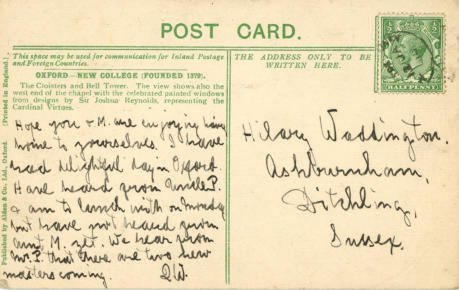 POST CARD.
This space may be used for communication for Inland Postage
and Foreign Countries.
OXFORD—NEW COLLEGE (FOUNDED 1379).
The Cloisters and Bell Tower. The view shows also the
west end of the chapel with the celebrated painted windows
from designs by Sir Joshua Reynolds, representing the
Cardinal Virtues.
Hope you & M. are enjoying having
home to yourselves. I have
had delightful day in Oxford.
Have heard from Uncle P.
& am to lunch with on Monday
but have not heard from
aunt M. yet. We hear from
Mr. P. that there are two new
masters coming.
THE ADDRESS ONLY TO BE
WRITTEN HERE.
Hilary Waddington.
Ashburnham,
Ditchling,
Sussex.
HALFPENNY
Published by Alden & Co., Ltd., Oxford.
[Printed in England.]